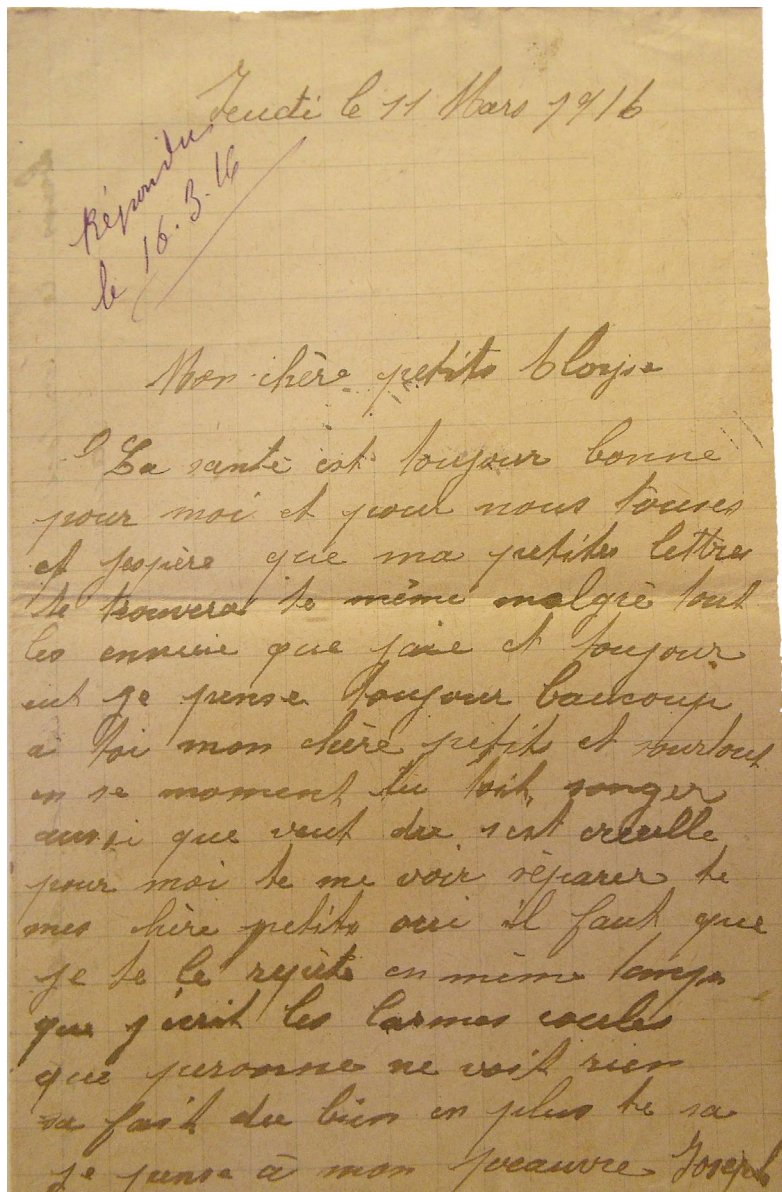 Jeudi le 11 Mars 1916
Répondu
le 16.3.16
Mon chère petits Eloyse
La santé est toujour bonne
pour moi et pour nous touses
et jespère que ma petites lettres
te trouvera te même malgré tout
les ennuie que jaie et toujour
eut je pense toujour baucoup
a toi mon chère petits et surtout
en se moment tu toit songer
aussi que veut du sest creulle
pour moi te me voir séparer te
mes chère petits oui il faut que
je te le repète en même temps
que j'écrit les larmes coules
que personne ne voit rien
sa fait du bien en plus te sa
je pense à mon preauvre Joseph